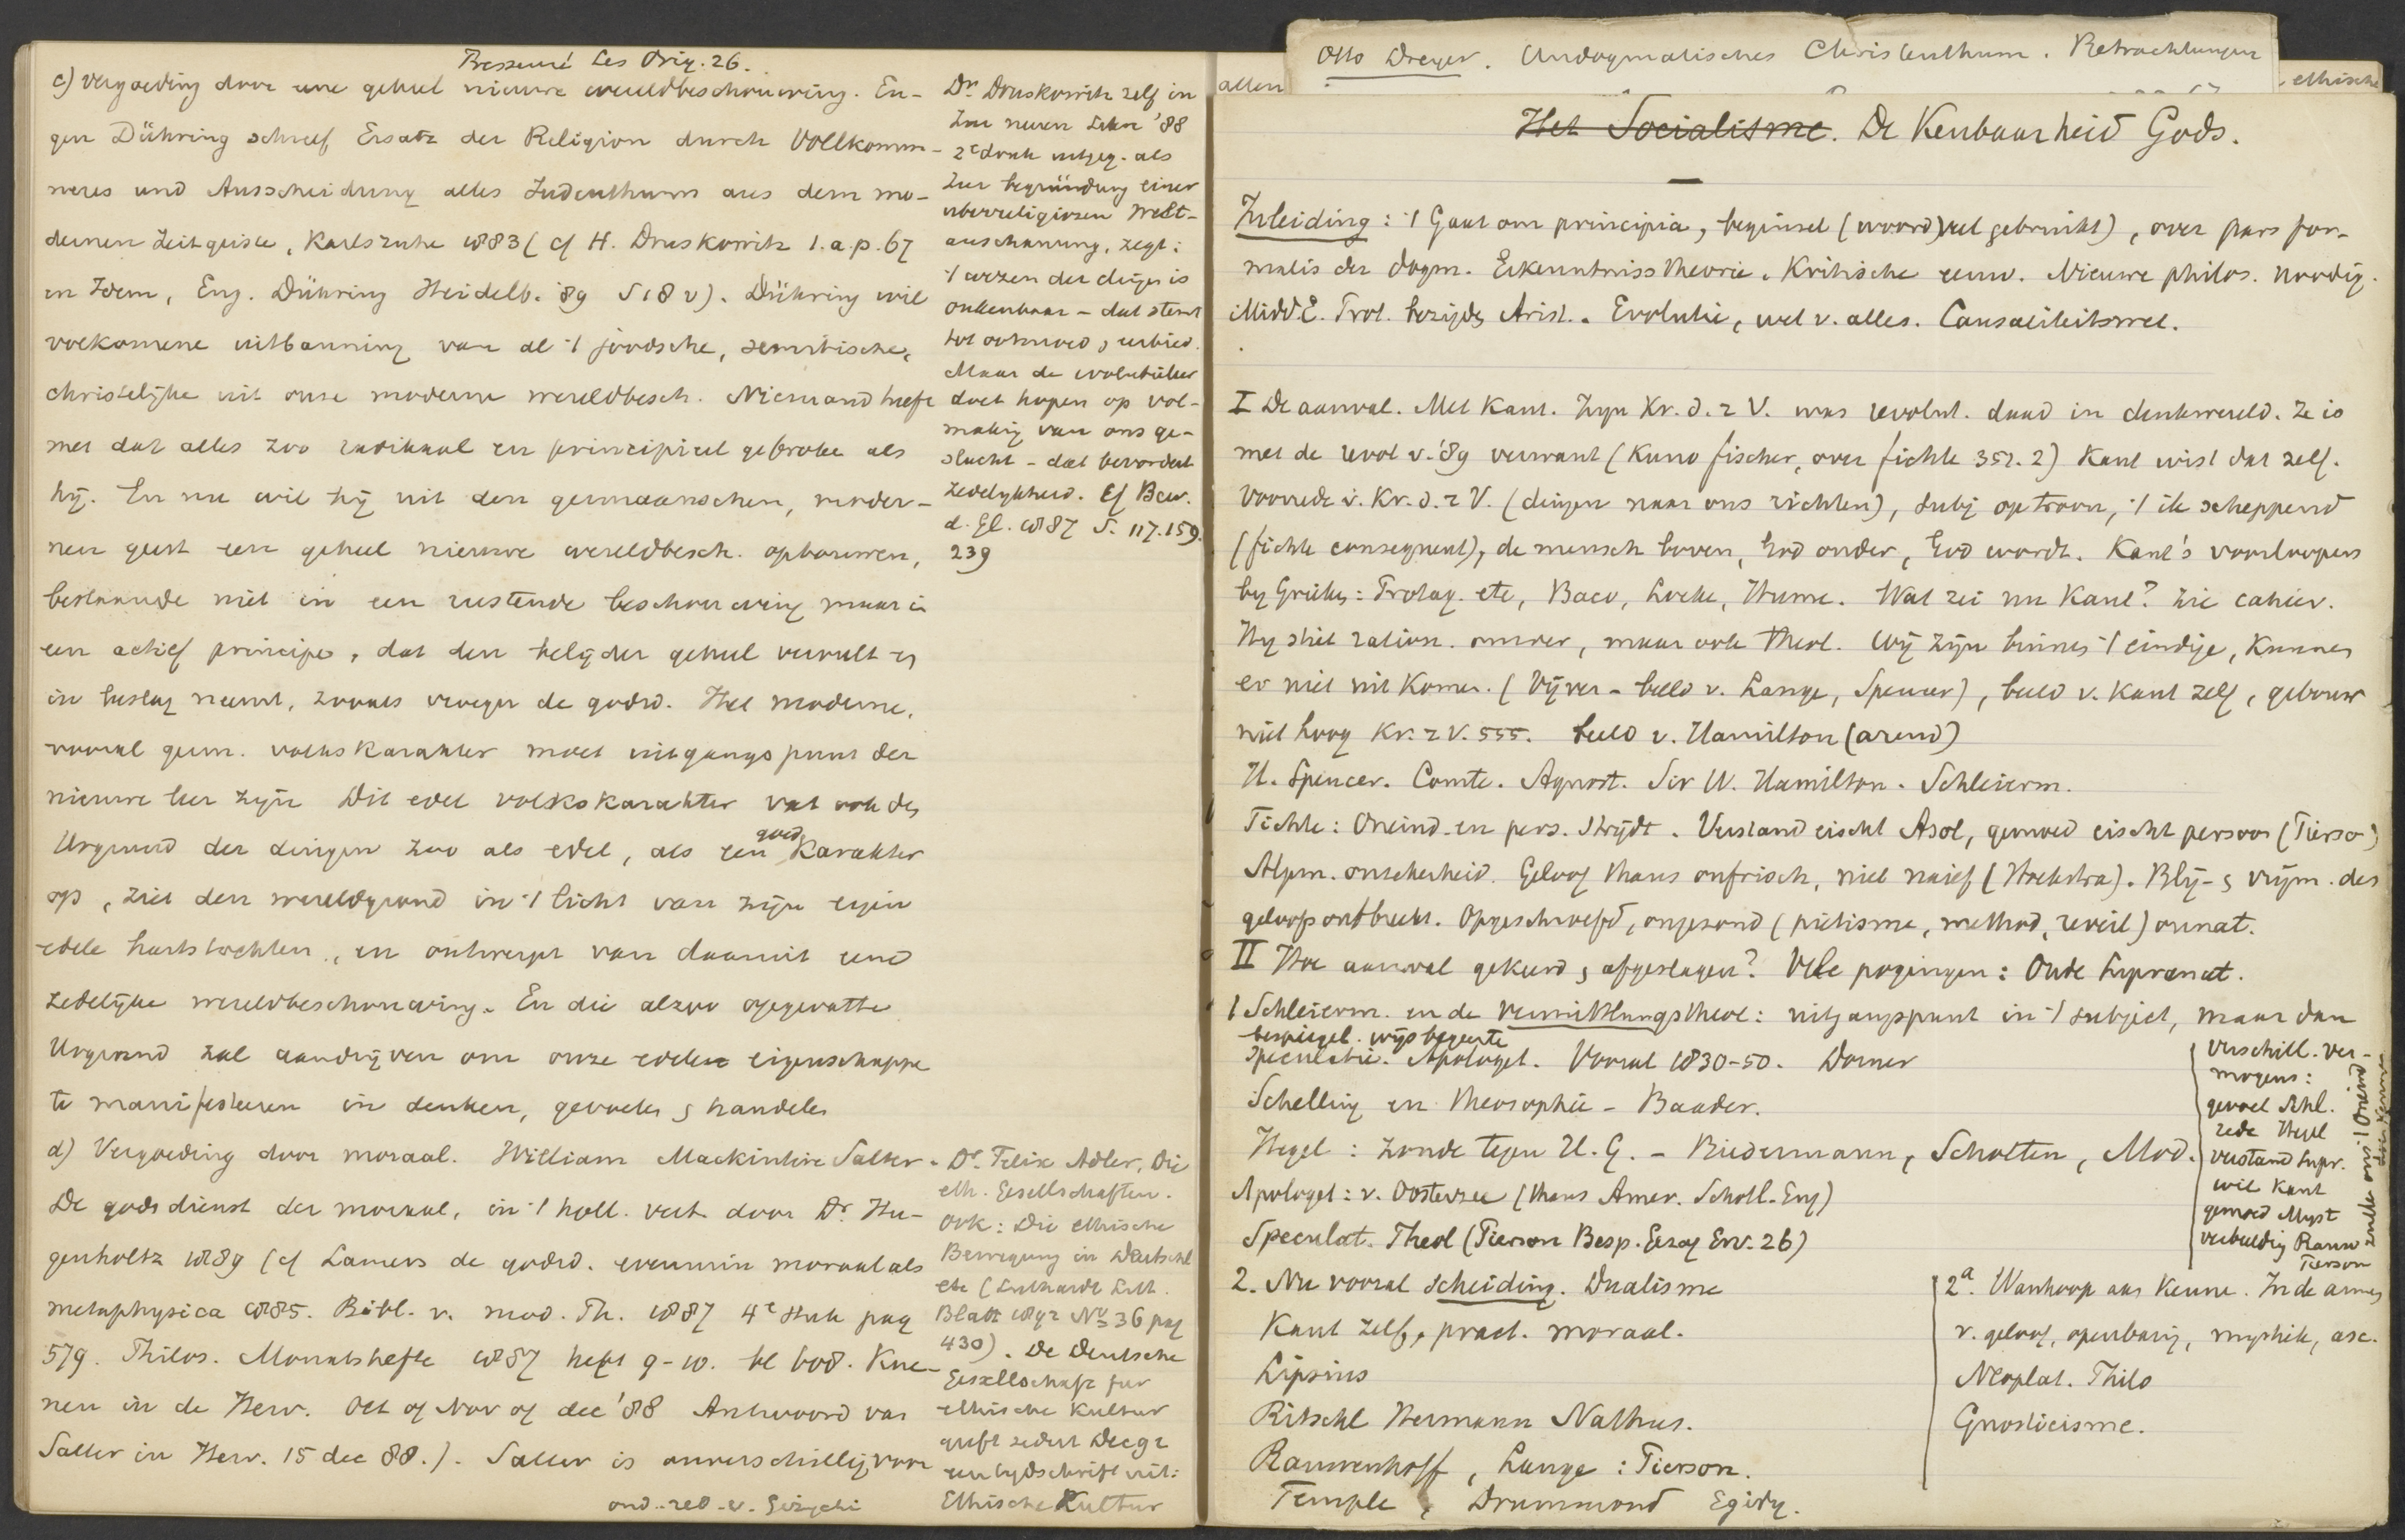 Bessemé Les Orig. 26.
c) Vergoeding door eene geheel nieuwe wereldbeschouwing. Eu-
gen Dühring schreef Ersatz der Religion durch Vollkomm-
neres und Ausscheidung alles Judenthums aus dem mo-
dernen Zeitgeiste, Karlsruhe 1883 (cf H. Druskowitz l.a.p. 67
en Idem, Eug. Dühring Heidelb. '89 S 18 v). Dühring wil
volkomene uitbanning van al 't joodsche, semitische,
christelijke uit onze moderne wereldbesch. Niemand heeft
met dat alles zoo radikaal en principieel gebroke als
hij. En nu wil hij uit den germaanschen, moder-
nen geest een geheel nieuwe wereldbesch. opbouwen,
bestaande niet in een rustende beschouwing maar in
een actief principe, dat den belijder geheel vervult en
in beslag neemt, zooals vroeger de godsd. Het moderne,
vooral germ. volkskarakter moet uitgangspunt der
nieuwe leer zijn Dit edel volkskarakter vat ook den
Urgrund der dingen zoo als edel, als een goed karakter
op, ziet den wereldgrund in 't licht van zijn eigen
edele hartstochten, en ontwerpt van daaruit eene
zedelijke wereldbeschouwing. En die alzoo opgevatte
Urgrund zal aandrijven om onze edele eigenschappe
te manifesteeren in denken, gevoelen & handelen
d) Vergoeding door moraal. William Mackintire Salter.
De godsdienst der moraal, in 't holl. vert. door Dr. Hu-
genholtz 1889 (cf Lamers de godsd. evenmin moraal als
metaphysica 1885. Bibl. v. mod. Th. 1887 4e stuk pag
579. Philos. Monatshefte 1887 heft 9-10. bl 608. Kue-
nen in de Herv. Oct of Nov of dec '88 Antwoord van
Salter in Herv. 15 dec 88.). Salter is onverschillig voor
Dr Druskowitz zelf in
Zur neuen Lehre '88
2e druk uitgeg. als
Zur begründung einer
überreligiösen Welt-
anschauung, zegt:
't wezen der dingen is
onkenbaar – dat stemt
tot ootmoed, eerbied.
Maar de evolutieleer
doet hopen op vol-
making van ons ge-
slacht – dat bevordert
zedelijkheid. Cf Bew.
d. Gl. 1887 S. 117. 159.
239
Dr. Felix Adler, Die
eth. Gesellschaften.
Ook: Die ethische
Bewegung in Deutschl
etc (Luthardt Litt.
Blatt 1892 No 36 pag
430). De Deutsche
Gesellschaft für
ethische Kultur
geeft sedert Dec 92
een tijdschrift uit:
Ethische Kultur
ond. red. v. Gizycki
Otto Dreyer. Undogmatisches Christenthum. Betrachtungen
allen
ethische
Het Socialisme. De Kenbaarheid Gods.
Inleiding: 't Gaat om principia, beginsel (woord veel gebruikt), over pars for-
malis der dogm. Erkenntnisstheorie. Kritische eeuw. Nieuwe philos. noodig.
Midd.E. Prot. bezijden Arist.. Evolutie, wet v. alles. Causaliteitswet.
I De aanval. Met Kant. Zijn Kr. d. r V. was revolut. daad in denkwereld. Ze is
met de revol v. '89 verwant (Kuno fischer, over fichte 352. 2) Kant wist dat zelf.
Voorrede v. Kr. d. r V. (dingen naar ons richten), subj op troon, 't ik scheppend
(fichte consequent), de mensch boven, God onder, God wordt. Kant's voorloopers
bij Grieken: Protag. etc, Baco, Locke, Hume. Wat zei nu Kant? Zie cahier.
Hij stiet ration. omver, maar ook Theol. Wij zijn binnen 't eindige, kunnen
er niet uit komen. (Vijver – beeld v. Lange, Spencer), beeld v. Kant zelf, gebouw
niet hoog Kr. r V. 555. beeld v. Hamilton (arend)
H. Spencer. Comte. Agnost. Sir W. Hamilton. Schleierm.
Fichte: Oneind. en pers. strijdt. Verstand eischt Abs., gemoed eischt persoon (Pierson)
Algem. onzekerheid. Geloof thans onfrisch, niet naief (Hoekstra). Blij- & vrijm. des
geloofs ontbreekt. Opgeschroefd, ongezond (pietisme, method, reveil) onnat.
II Hoe aanval gekeerd & afgeslagen? Vele pogingen: Oude Supranat.
1 Schleierm. en de Vermittlungstheol: uitgangspunt in 't subject, maar dan
bespiegel. wijsbegeerte
Speculatie. Apologet. Vooral 1830-50. Dorner
Schelling en theosophie – Baader.
Hegel: zonde tegen H. G. – Biedermann, Scholten, Mod.
Apologet: v. Oosterzee (thans Amer. Schotl. Eng)
Speculat. Theol (Pierson Besp. Gezag Erv. 26)
verschill. ver-
mogens:
gevoel Schl.
rede Hegel
verstand supr.
wil Kant
gemoed Myst
verbeelding Rauw
Pierson
2. Nu vooral scheiding. Dualisme
Kant zelf, pract. moraal.
Lipsius
Ritschl Hermann Nathus.
Rauwenhoff, Lange: Pierson.
Temple, Drummond Egidy.
2a. Wanhoop aan kenne. In de armen
v. geloof, openbaring, mystiek, asc.
Neoplat. Philo
Gnosticisme.